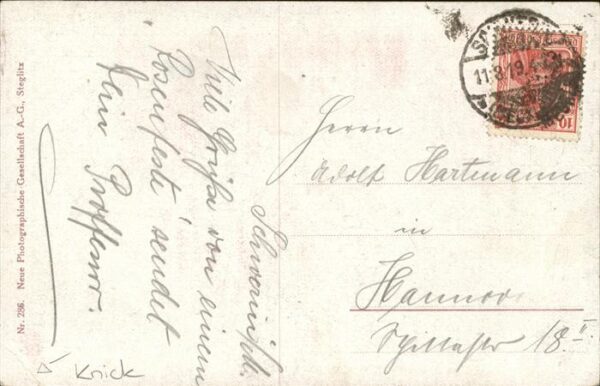 Nr. 286. Neue Photographische Gesellschaft A.-G., Steglitz
Viele Grüße von einem
Rosenfeste sendet
Dein
Herrn
Adolf Hartmann
in
Hannover
18 II
11.8.19
10
Knick